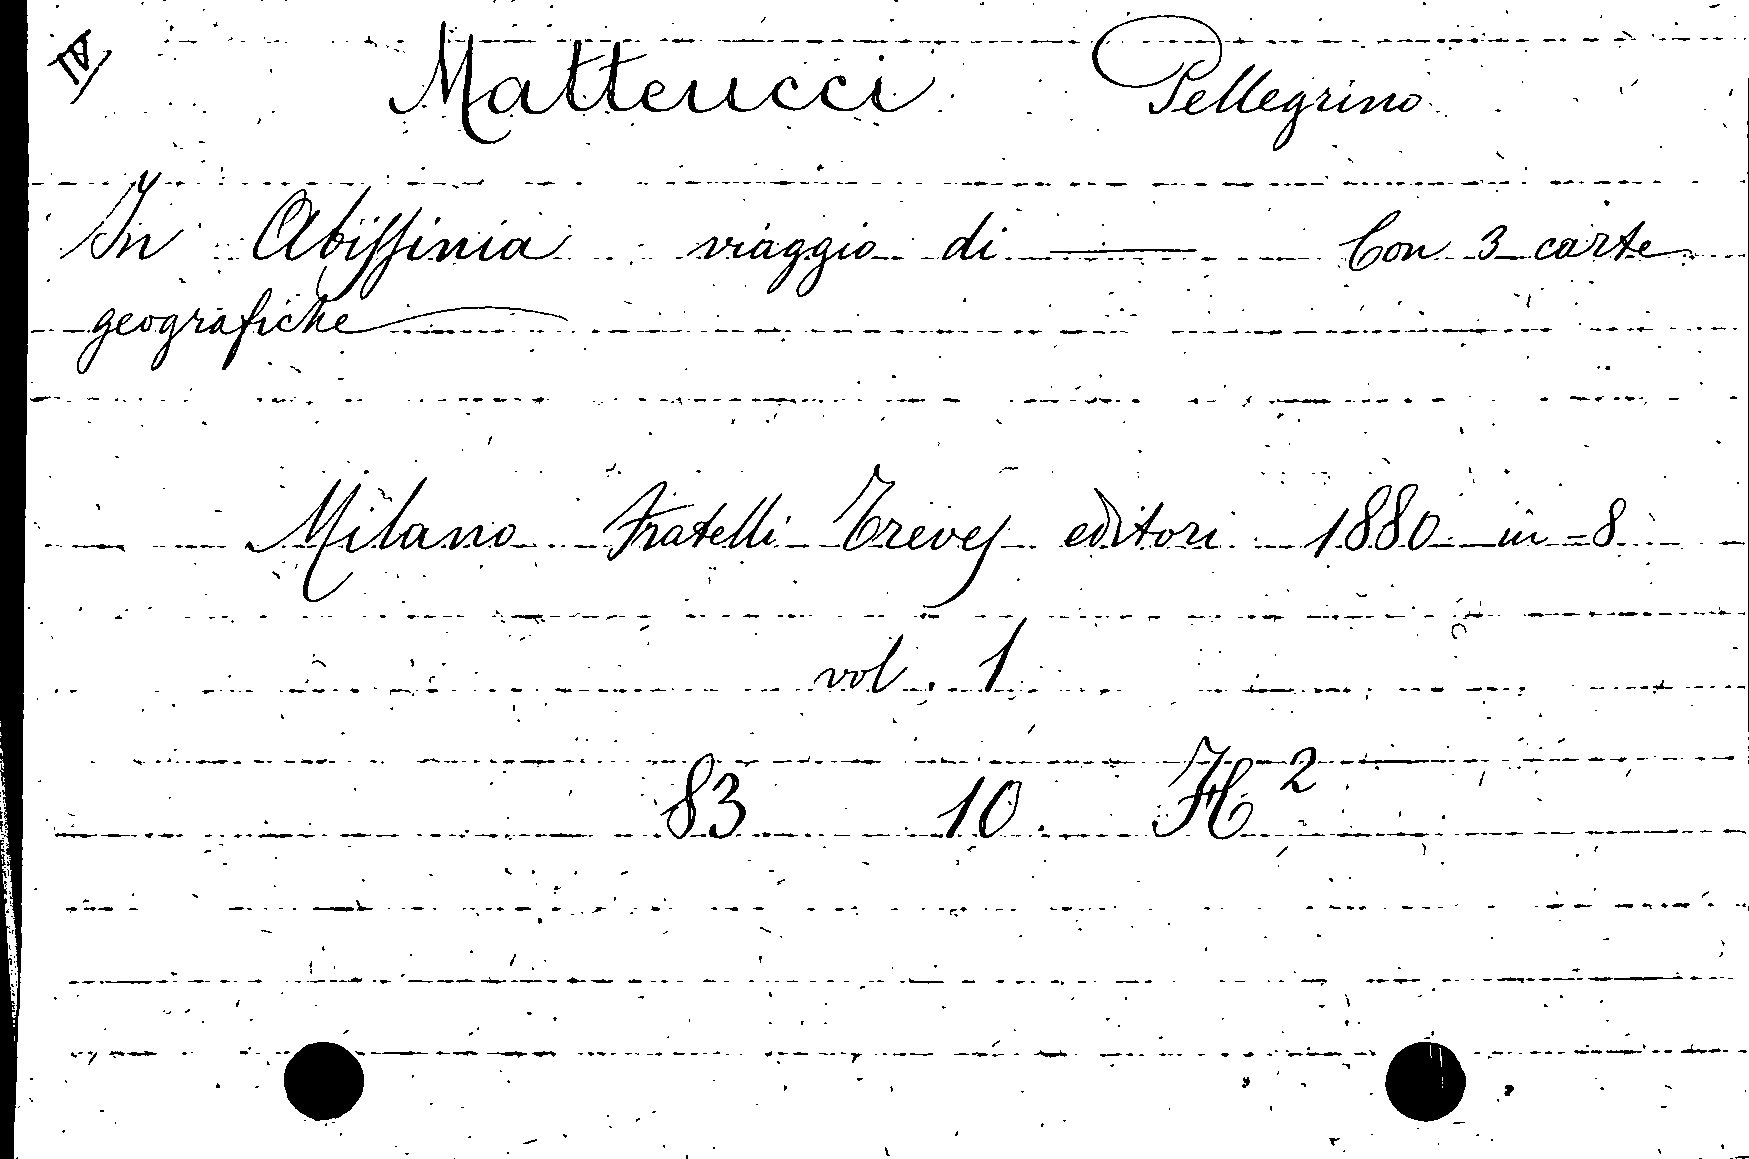 IV
Matteucci Pellegrino
In Abissinia viaggio di —— Con 3 carte
geografiche
Milano Fratelli Treves editori 1880 in-8
vol. 1
83 10 H²